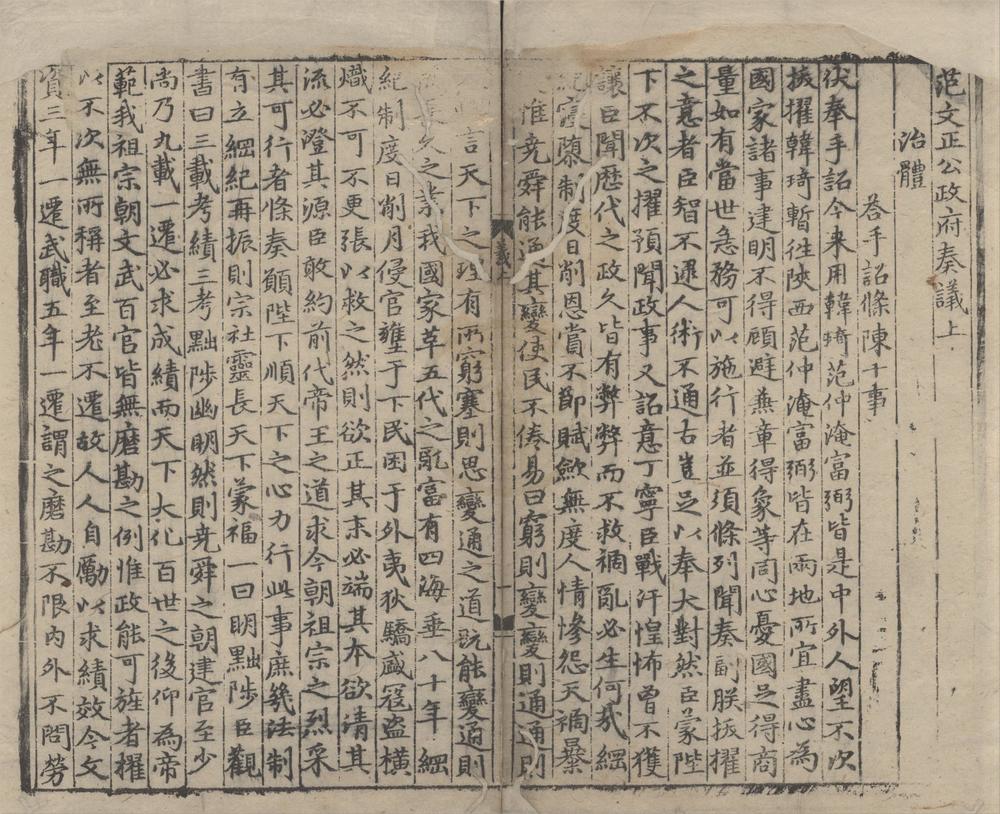 范文正公政府奏議上
治體
荅手詔條陳十事
伏奉手詔今来用韓琦范仲淹富弼皆是中外人望不次
拔擢韓琦暫徃陜西范仲淹富弼皆在兩地所宜盡心為
國家諸事建明不得顧避兼章得象等同心憂國足得商
量如有當世急務可以施行者並須條列聞奏副朕拔擢
之意者臣智不逮人術不通古豈足以奉大對然臣蒙陛
下不次之擢預聞政事又詔意丁寧臣戰汗惶怖曾不獲
讓臣聞歷代之政久皆有弊弊而不救禍亂必生何哉綱
紀寖隳制度日削恩賞不節賦斂無度人情慘怨天禍暴
惟堯舜能通其變使民不倦易曰窮則變變則通通則
義上
一
言天下之理有所窮塞則思變通之道既能變通則
長久之業我國家革五代之亂富有四海垂八十年綱
紀制度日削月侵官壅于下民困于外夷狄驕盛寇盜橫
熾不可不更張以救之然則欲正其末必端其本欲清其
流必澄其源臣敢約前代帝王之道求今朝祖宗之烈采
其可行者條奏願陛下順天下之心力行此事庶幾法制
有立綱紀再振則宗社靈長天下蒙福一曰明黜陟臣觀
書曰三載考績三考黜陟幽明然則堯舜之朝建官至少
尚乃九載一遷必求成績而天下大化百世之後仰為帝
範我祖宗朝文武百官皆無磨勘之例惟政能可旌者擢
以不次無所稱者至老不遷故人人自勵以求績效今文
資三年一遷武職五年一遷謂之磨勘不限內外不問勞